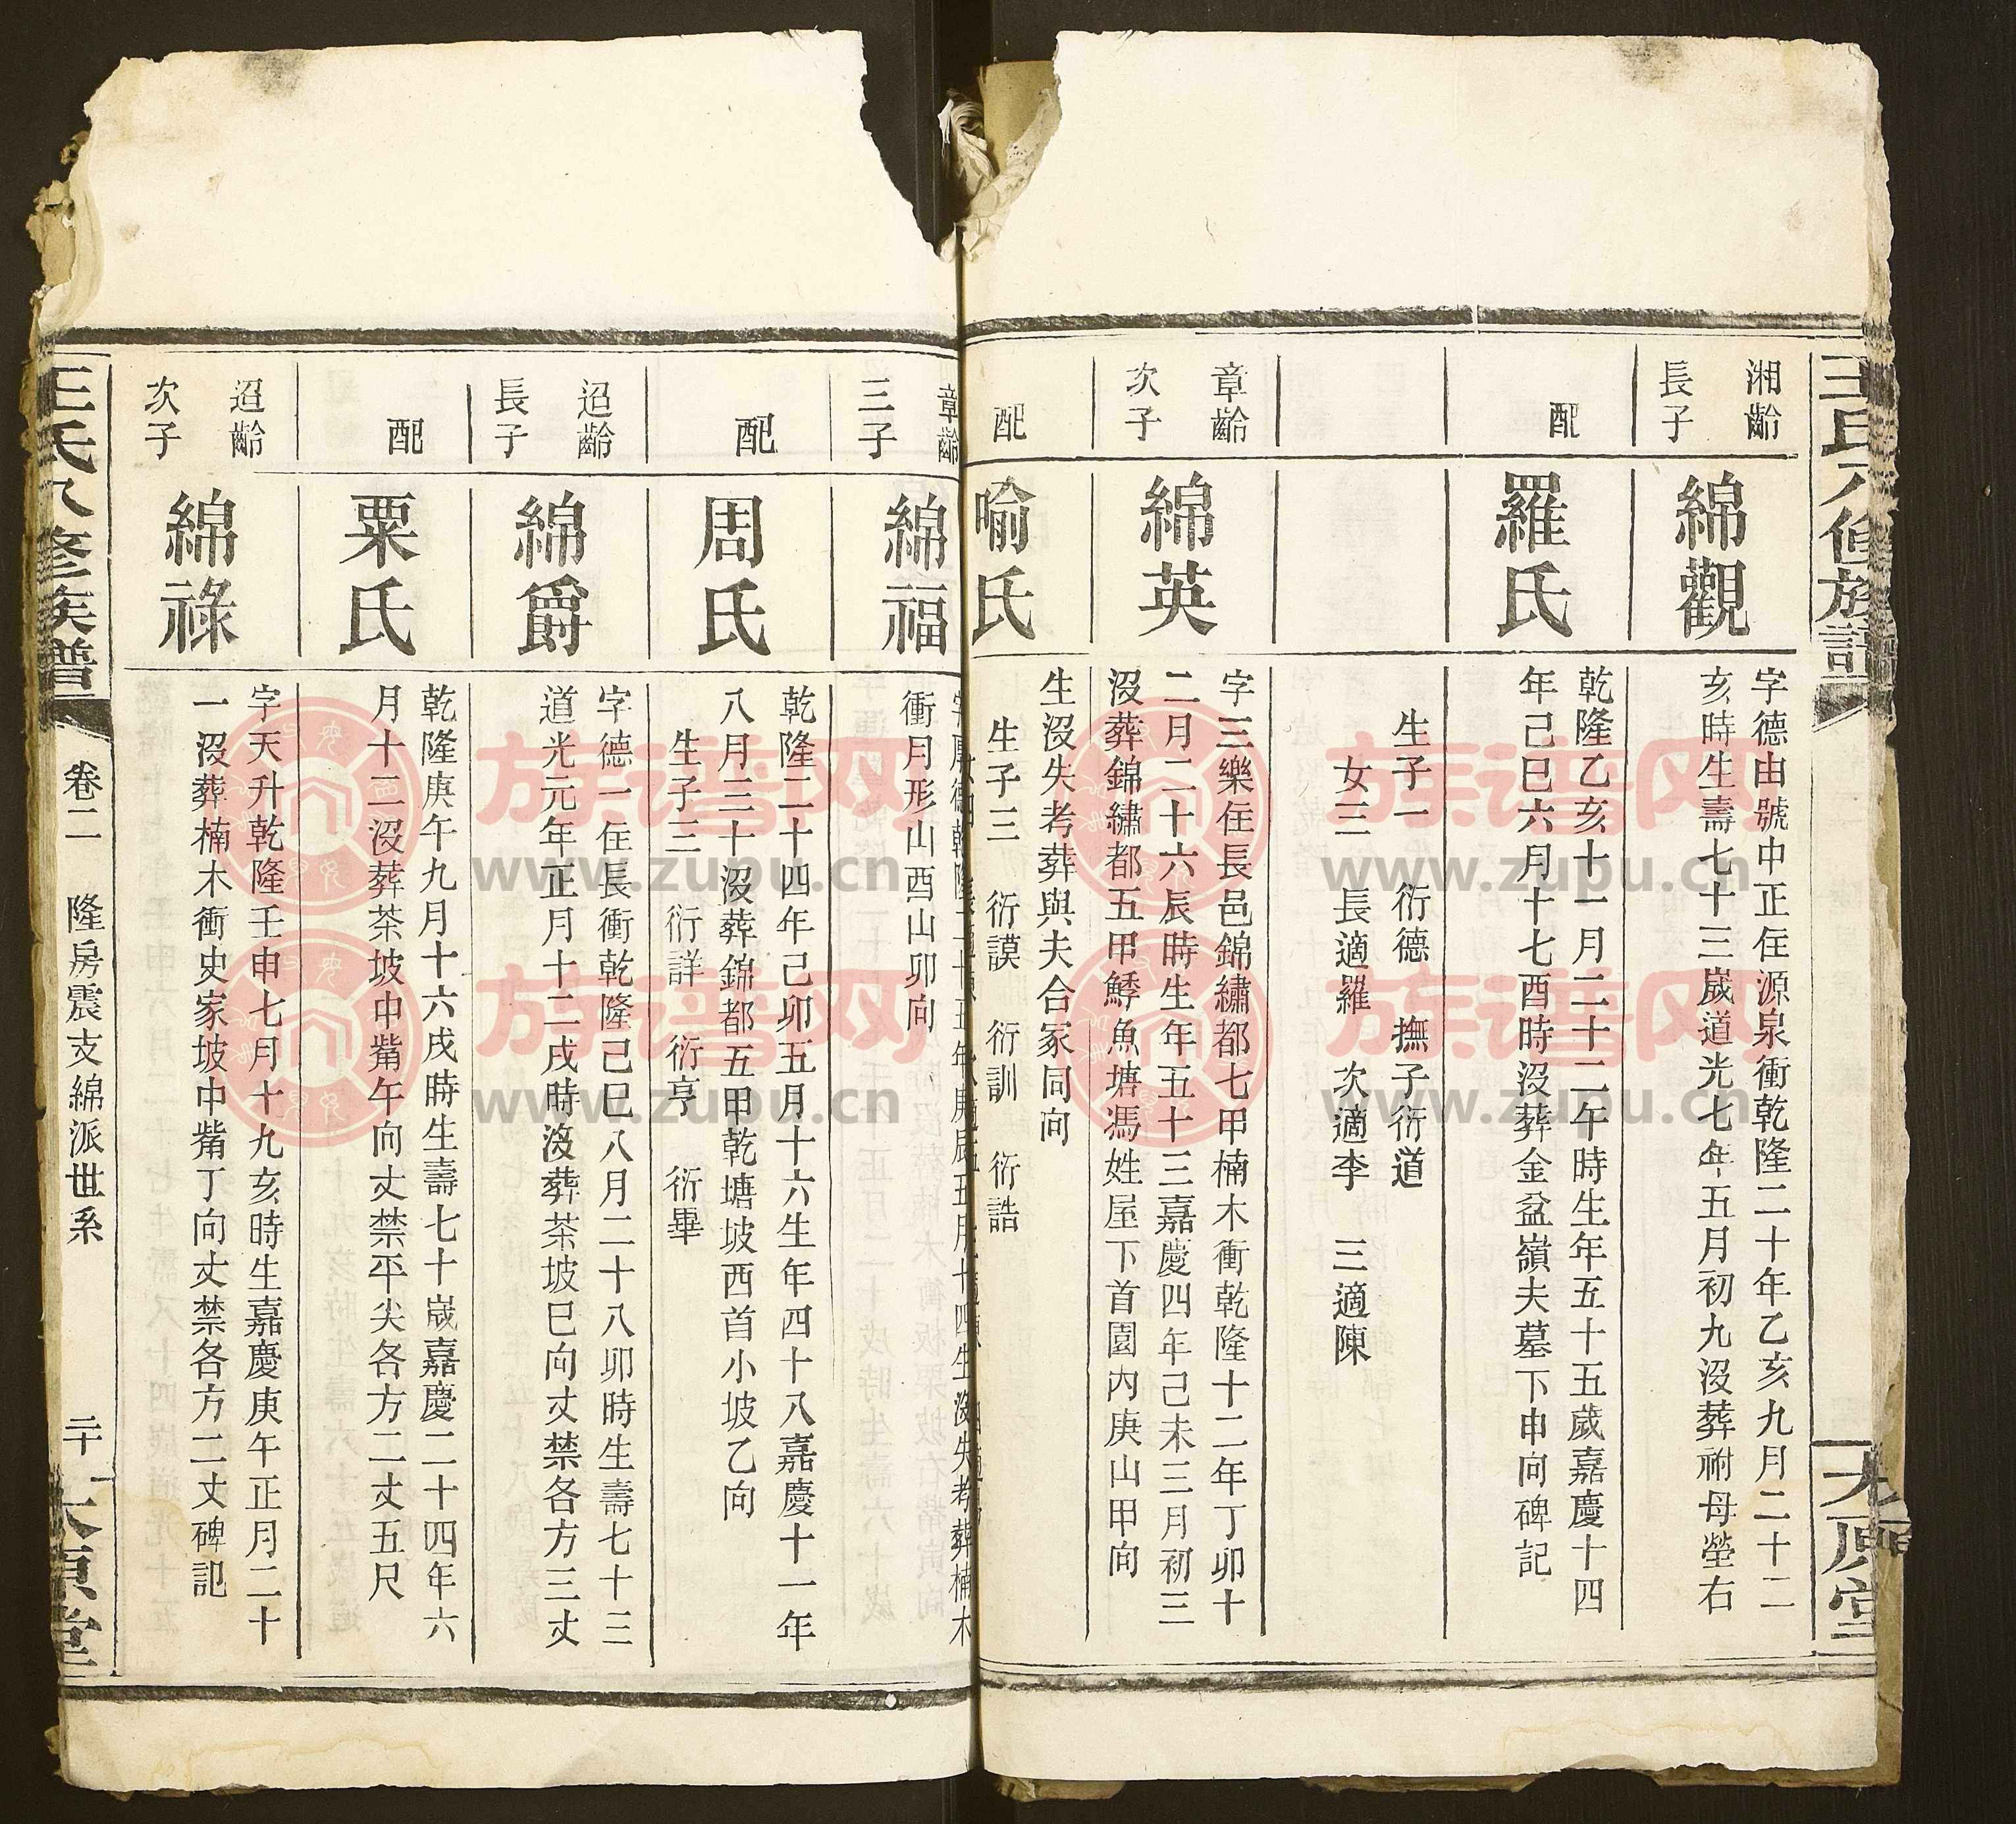 王氏八修族譜
太原堂
湘齡
長子
綿觀
字德由號中正住源泉衝乾隆二十年乙亥九月二十二
亥時生壽七十三歲道光七年五月初九沒葬祔母塋右
配
羅氏
乾隆乙亥十一月二十二午時生年五十五歲嘉慶十四
年己巳六月十七酉時沒葬金盆嶺夫墓下申向碑記
生子一 衍德 撫子衍道
女三 長適羅 次適李 三適陳
章齡
次子
綿英
字三樂住長邑錦繡都七甲楠木衝乾隆十二年丁卯十
二月二十六辰時生年五十三嘉慶四年己未三月初三
沒葬錦繡都五甲鯚魚塘馮姓屋下首園內庚山甲向
配
喻氏
生沒失考葬與夫合冢同向
生子三 衍謨 衍訓 衍誥
章齡
三子
綿福
字厚德乾隆二十五年庚辰五月十四生沒失考葬楠木
衝月形山酉山卯向
配
周氏
乾隆二十四年己卯五月十六生年四十八嘉慶十一年
八月三十沒葬錦都五甲乾塘坡西首小坡乙向
生子三 衍詳 衍亨 衍畢
迢齡
長子
綿爵
字德一住長衝乾隆己巳八月二十八卯時生壽七十三
道光元年正月十二戌時沒葬茶坡巳向丈禁各方三丈
配
粟氏
乾隆庚午九月十六戌時生壽七十歲嘉慶二十四年六
月十二沒葬茶坡中嘴午向丈禁平尖各方二丈五尺
迢齡
次子
綿祿
字天升乾隆壬申七月十九亥時生嘉慶庚午正月二十
一沒葬楠木衝史家坡中嘴丁向丈禁各方二丈碑記
王氏八修族譜
卷二 隆房震支綿派世系
二十
太原堂
族谱网
www.zupu.cn
族谱网
www.zupu.cn
族谱网
www.zupu.cn
族谱网
www.zupu.cn